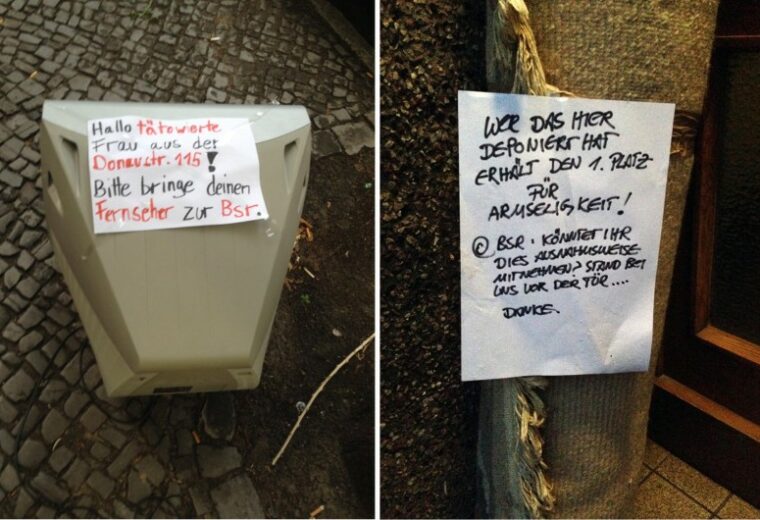 Hallo tätowierte
Frau aus der
Donaustr. 115!
Bitte bringe deinen
Fernseher zur Bsr.
WER DAS HIER
DEPONIERT HAT
ERHÄLT DEN 1. PLATZ
FÜR
ARMSELIGKEIT!
© BSR. KÖNNTET IHR
DIES AUSNAHMSWEISE
MITNEHMEN? STAND BEI
UNS VOR DER TÜR....
DANKE.